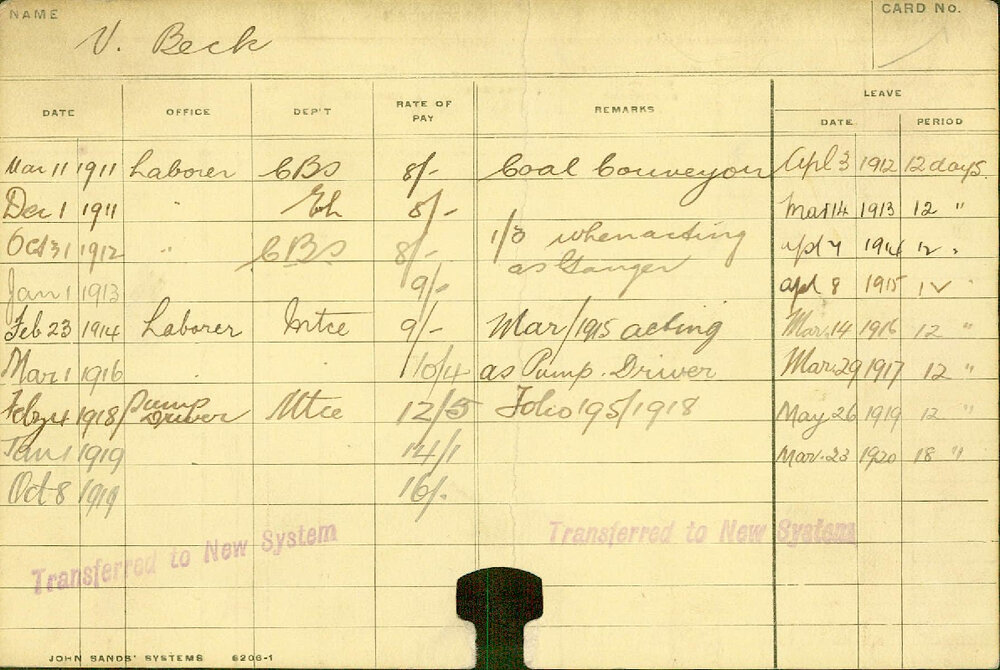 NAME V. Beck CARD No.
LEAVE
DATE OFFICE DEP'T RATE OF PAY REMARKS DATE PERIOD
Mar 11 1911 Laborer CBS 8/- Coal Conveyor Apl 3 1912 12 days
Dec 1 1911 " 8/- Mar 14 1913 12 "
Oct 31 1912 " CBS 8/- 1/3 when acting apl 7 1914 12 "
as Ganger
Jan 1 1913 9/- apl 8 1915 12 "
Feb 23 1914 Laborer Mtce 9/- Mar/1915 acting Mar. 14 1916 12 "
Mar 1 1916 10/4 as Pump Driver Mar. 29 1917 12 "
1918 Pump Driver Mtce 12/5 Folio 195/1918 May 26 1919 12 "
Jan 1 1919 14/1 Mar. 23 1920 18 "
Oct 8 1919 16/-
Transferred to New System Transferred to New System
JOHN SANDS' SYSTEMS 6206-1